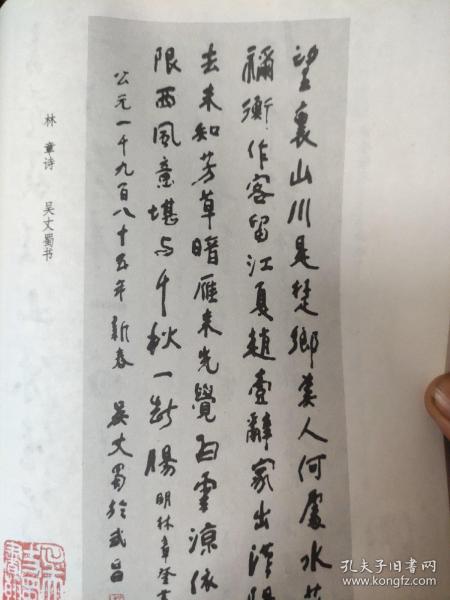 望裏山川是楚鄉美人何處水
禰衡作客留江夏趙壹辭家出漢陽
去未知芳草暗雁来先覺白雲涼依
限西風意堪与千秋一斷腸 明林章登
公元一千九百八十五年新春 吴丈蜀於武昌
林章诗 吴丈蜀书
孔夫子旧书网